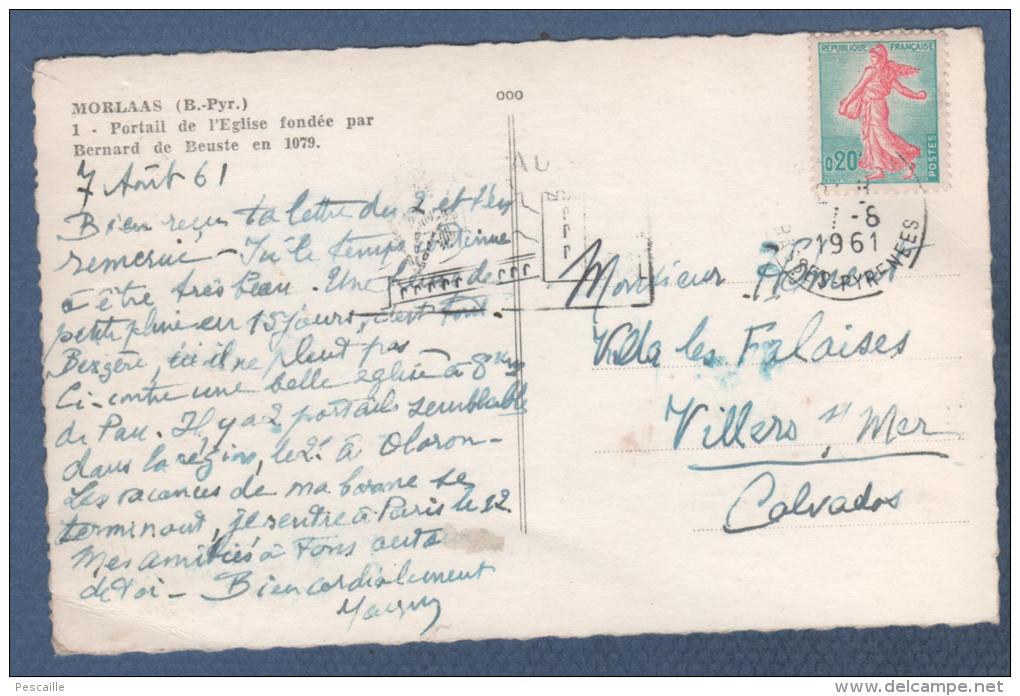 MORLAAS (B.-Pyr.)
1 - Portail de l'Eglise fondée par
Bernard de Beuste en 1079.
ooo
REPUBLIQUE FRANÇAISE
0,20
POSTES
AU
7-8
1961
BASSES-PYRENEES
7 Août 61
Bien reçu ta lettre du 2 et t'en
remercie - Ici le temps continue
à être très beau. Une de
petite pluie en 15 jours, c'est tout.
ici il ne pleut pas
Ci-contre une belle église à 8 km
de Pau. Il y a 2 portails semblables
dans la région, le 2e à Oloron -
Les vacances de ma bonne se
terminant, je rentre à Paris le 12.
Mes amitiés à tous autour
de toi - Bien cordialement
Monsieur
Villa les Falaises
Villers s/ Mer
Calvados
Pescaille
http://www.delcampe.net